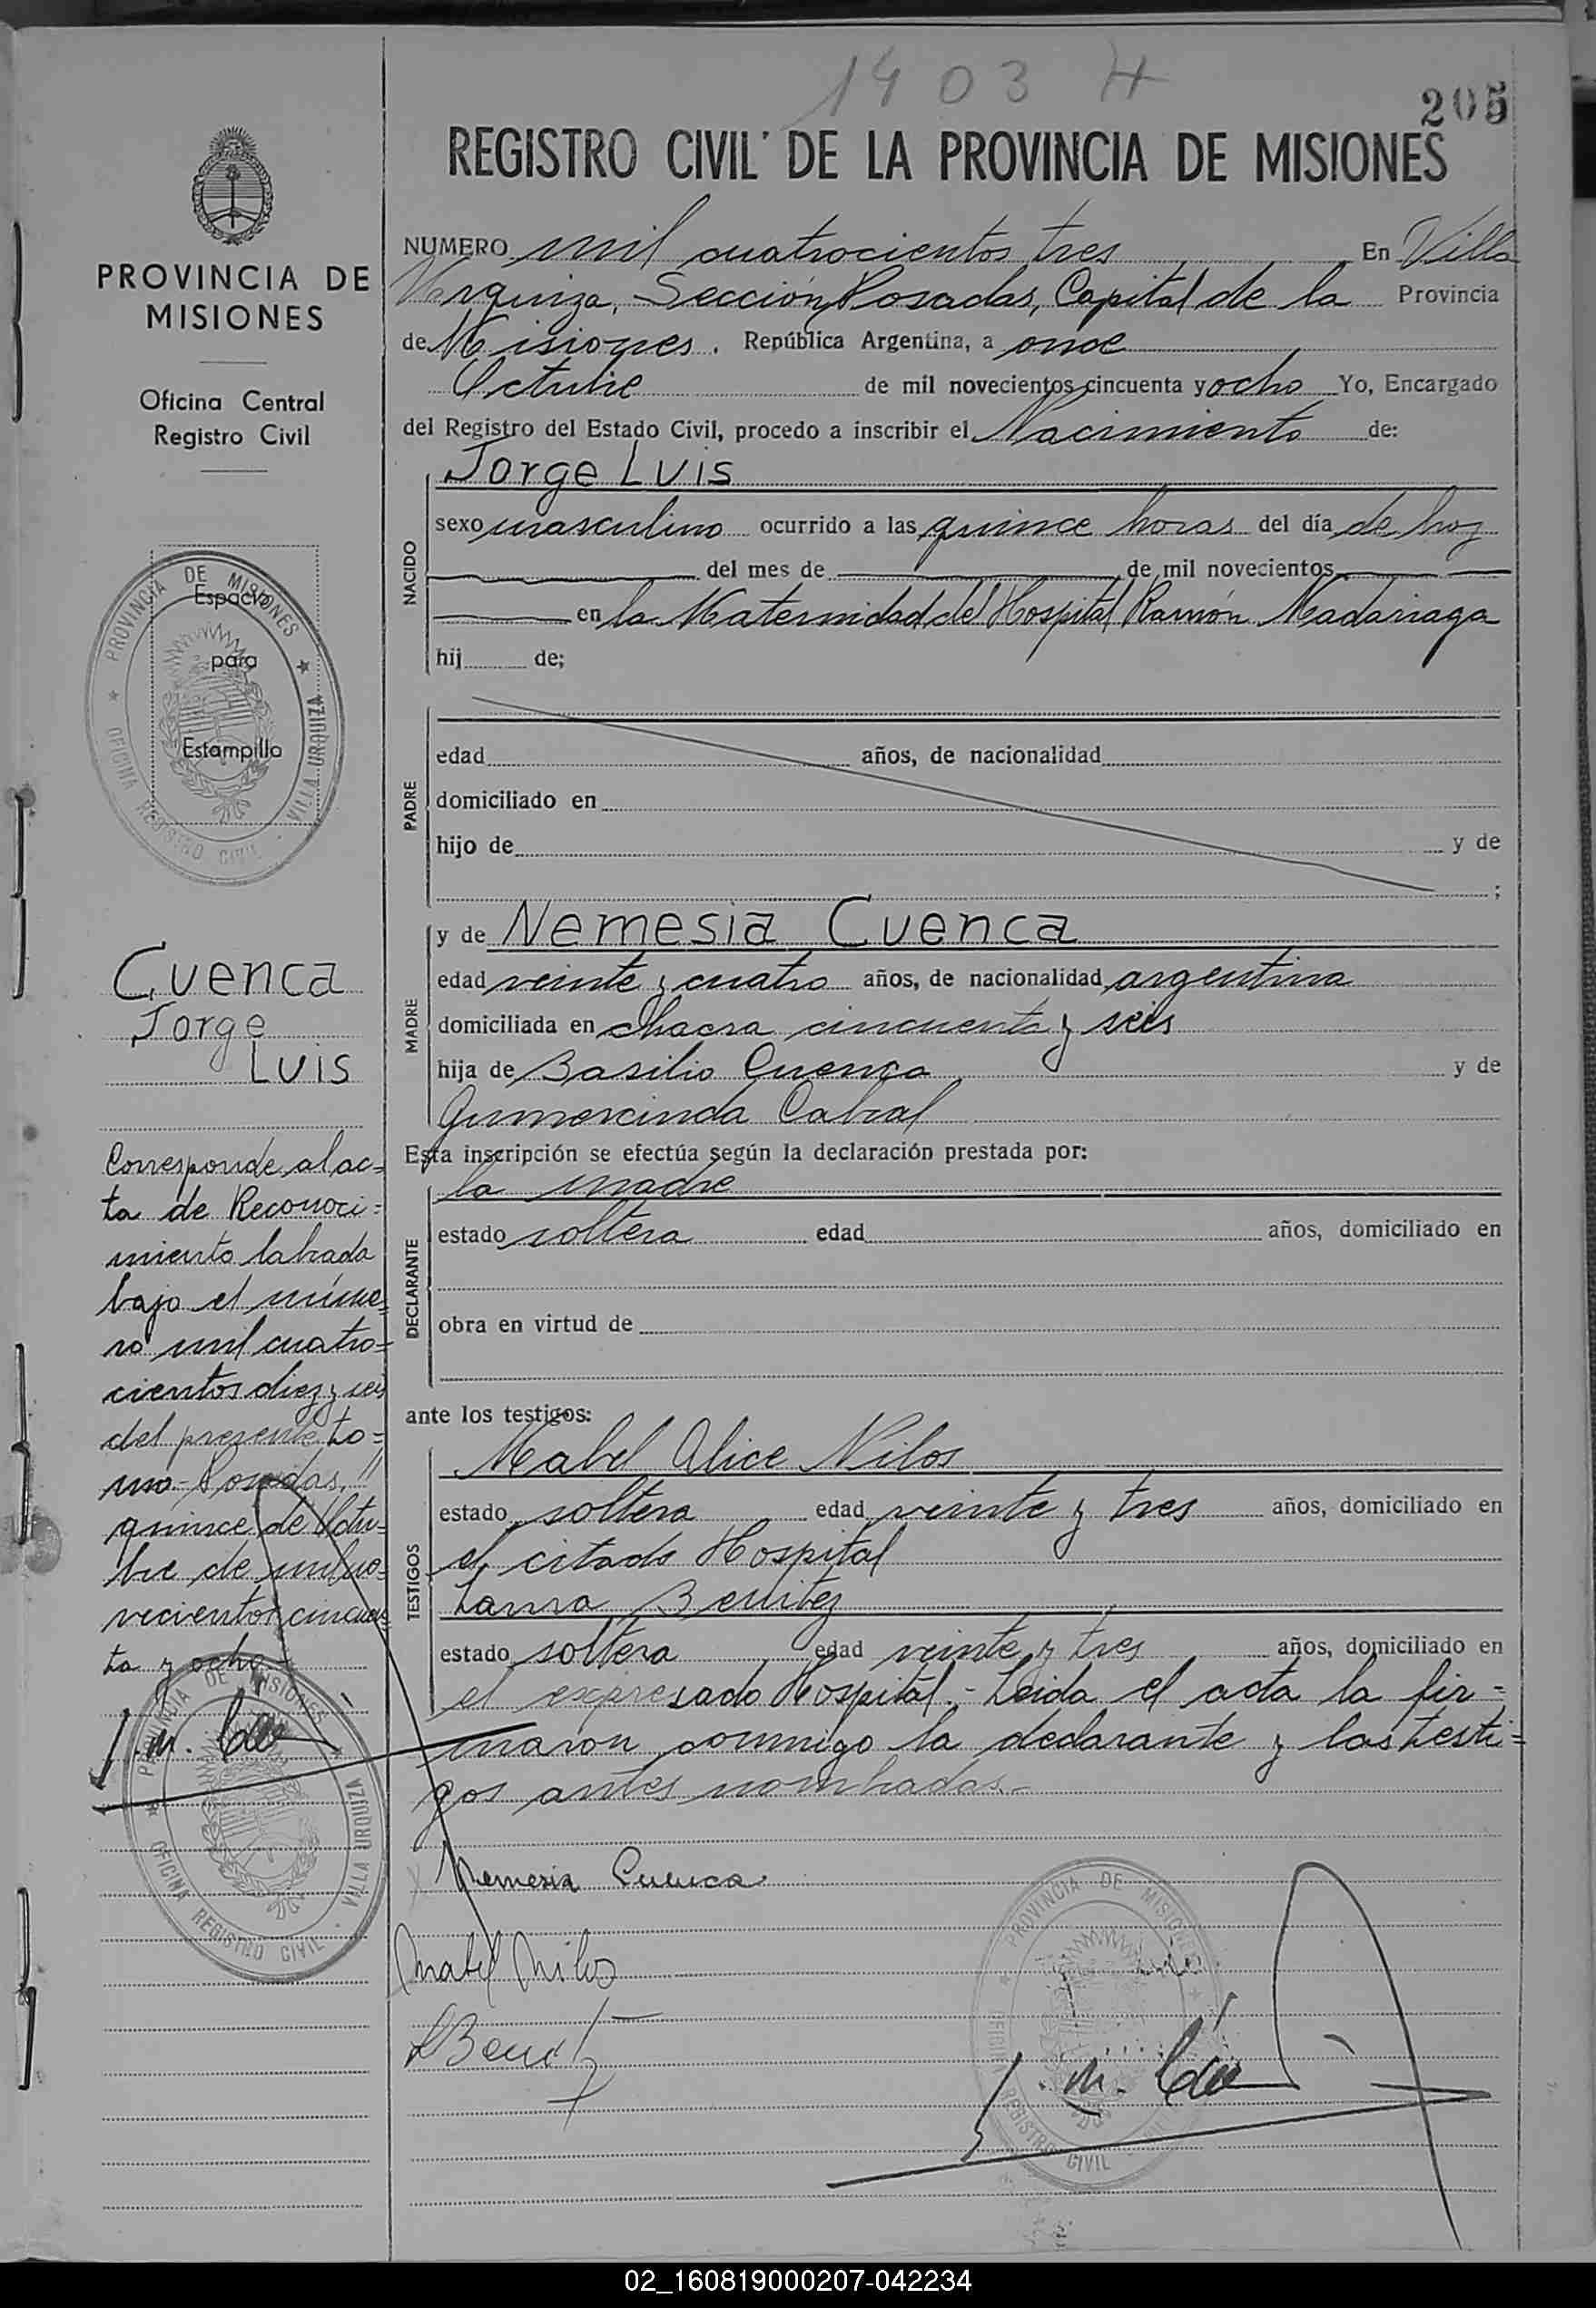 1403 H
205
REGISTRO CIVIL DE LA PROVINCIA DE MISIONES
PROVINCIA DE
MISIONES
Oficina Central
Registro Civil
PROVINCIA DE MISIONES
Espacio
para
Estampilla
OFICINA REGISTRO CIVIL - VILLA URQUIZA
Cuenca
Jorge
Luis
Corresponde al ac=
ta de Reconoci=
miento labrada
bajo el núme=
ro mil cuatro=
cientos diez y seis
del presente to=
mo - Posadas,
quince de Octu=
bre de mil no=
vecientos cincuen
ta y ocho
PROVINCIA DE MISIONES
OFICINA REGISTRO CIVIL - VILLA URQUIZA
NUMERO mil cuatrocientos tres En Villa
Urquiza, Sección Posadas, Capital de la Provincia
de Misiones. República Argentina, a once
Octubre de mil novecientos cincuenta y ocho Yo, Encargado
del Registro del Estado Civil, procedo a inscribir el Nacimiento de:
NACIDO
Jorge Luis
sexo masculino ocurrido a las quince horas del día de hoy
del mes de de mil novecientos
en la Maternidad del Hospital Ramón Madariaga
hij de;
PADRE
edad años, de nacionalidad
domiciliado en
hijo de y de
;
MADRE
y de Nemesia Cuenca
edad veinte y cuatro años, de nacionalidad argentina
domiciliada en chacra cincuenta y seis
hija de Basilio Cuenca y de
Gumercinda Cabral
Esta inscripción se efectúa según la declaración prestada por:
DECLARANTE
la madre
estado soltera edad años, domiciliado en
obra en virtud de
ante los testigos:
TESTIGOS
Mabel Alice Nilos
estado soltera edad veinte y tres años, domiciliado en
el citado Hospital
Laura Benitez
estado soltera edad veinte y tres años, domiciliado en
el expresado Hospital.- Leida el acta la fir=
maron conmigo la declarante y las testi=
gos antes nombradas.-
Nemesia Cuenca
Mabel Nilos
LBenitez
PROVINCIA DE MISIONES
OFICINA REGISTRO CIVIL
02_160819000207-042234